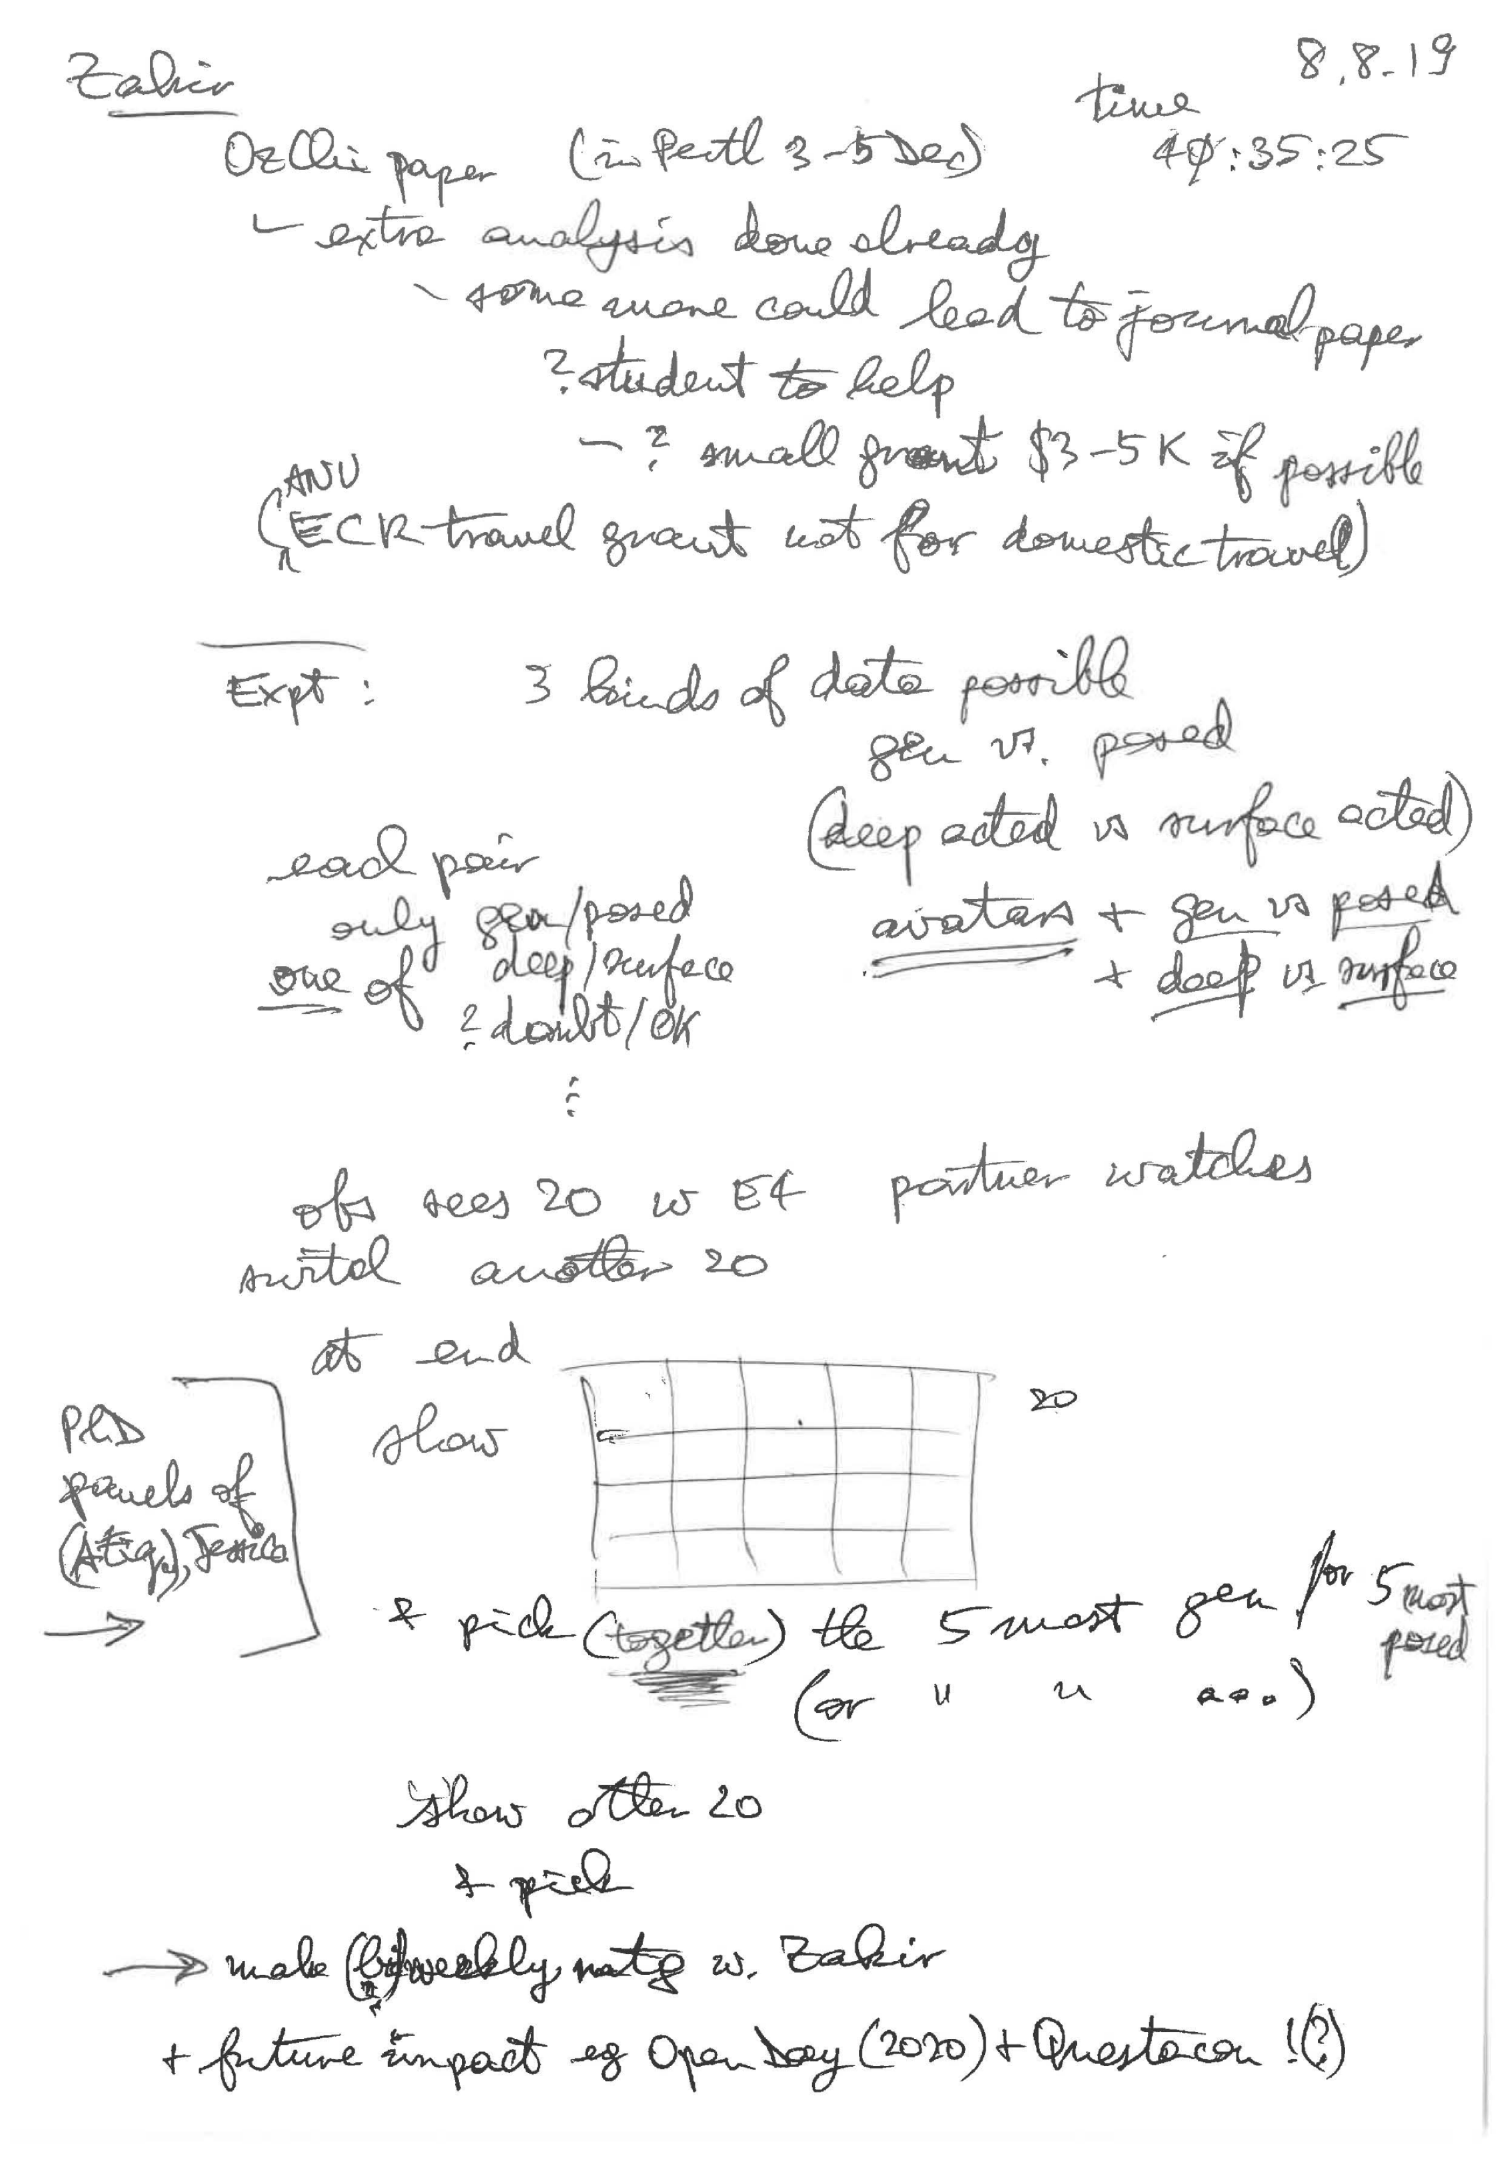 Zakir
8.8.19
time
40:35:25
OzChi paper (in Perth 3-5 Dec)
- extra analysis done already
- some more could lead to journal paper
? student to help
- ? small grant $3-5K if possible
ANU
(ECR travel grant not for domestic travel)
Expt: 3 kinds of data possible
gen vs. posed
(deep acted vs surface acted)
avatars + gen vs posed
+ deep vs surface
each pair
only gen/posed
one of deep/surface
? doubt/OK
:
obs sees 20 w E4 partner watches
switch another 20
at end
show
20
PhD
panels of
(Atiq), Jessica
→
& pick (together) the 5 most gen / or 5 most
posed
(or " " ...)
show other 20
& pick
→ make (bi)weekly mtg w. Zakir
+ future impact eg Open Day (2020) + Questacon !(?)